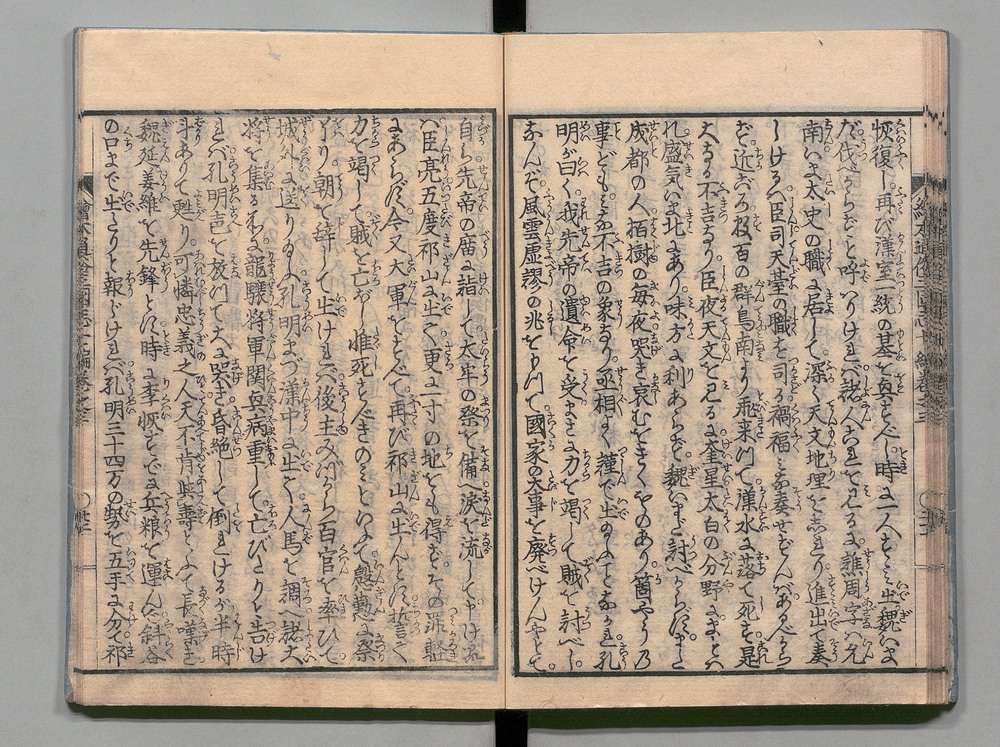 恢復し。再び漢室一統の基を興さん。時に一人すゝみ出魏いま
だ伐べからずと呼りければ諸人これを見るに。譙周字ハ允
南いま太史の職に居して。深く天文地理をしれり。進出て奏
しけるハ臣司天臺の職を司る。禍福ミな奏せずんバあるべから
ず近ごろ数百の群鳥南より飛来つて。漢水に落て死す是
大なる不吉なり。臣夜天文を見るに。奎星太白の分野にまとハれ
盛気いま北にあり。味方に利あらず。魏いまだ討べからず。また
成都の人。栢樹の毎夜哭き哀むをきくものあり。箇やうの
事どもミな不吉の象なり。丞相よく謹で出玉ふことなかれ孔
明が曰く。我先帝の遺命を受。まさに力を竭して賊を討べし。
なんぞ風雲虚謬の兆をもつて國家の大事を廃べけんやとて。
自ら先帝の廟に詣して。大牢の祭を備へ。涙を流して申けるハ
臣亮五度祁山に出て。更に一寸の地をも得ず。その罪軽
にあらず。今又大軍をすべて。再び祁山に出んとす。誓て
力を竭して賊を亡し。惟死すべきのミといひて。慇懃に祭
をハり。朝を辞して出ければ。後主ミづから百官を率ひて。
城外に送り玉ふ。孔明まづ漢中に出て人馬を調へ。諸大
将を集るに。龍驤将軍関興病重して。亡びたりと告け
れバ孔明声を放つて大に哭き。昏絶して倒れけるが。半時
斗ありて甦り。可憐忠義之人天不肯與壽といふて長嘆き
魏延姜維を先鋒とす。時に李恢をして。まづ兵粮を運んで斜谷
の口まで出たりと報じけれバ。孔明三十四万の勢を五手に分て祁